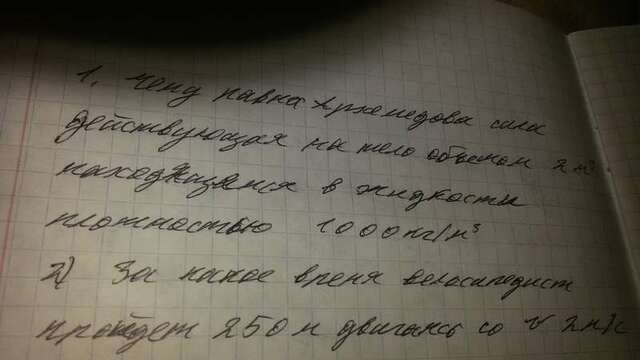 1. Чему равна Архемедова сила
действующая на тело объемом 2 м³
находящаяся в жидкости
плотностью 1000 кг/м³
2) За какое время велосипедист
пройдет 250 м двигаясь со v 2м/с